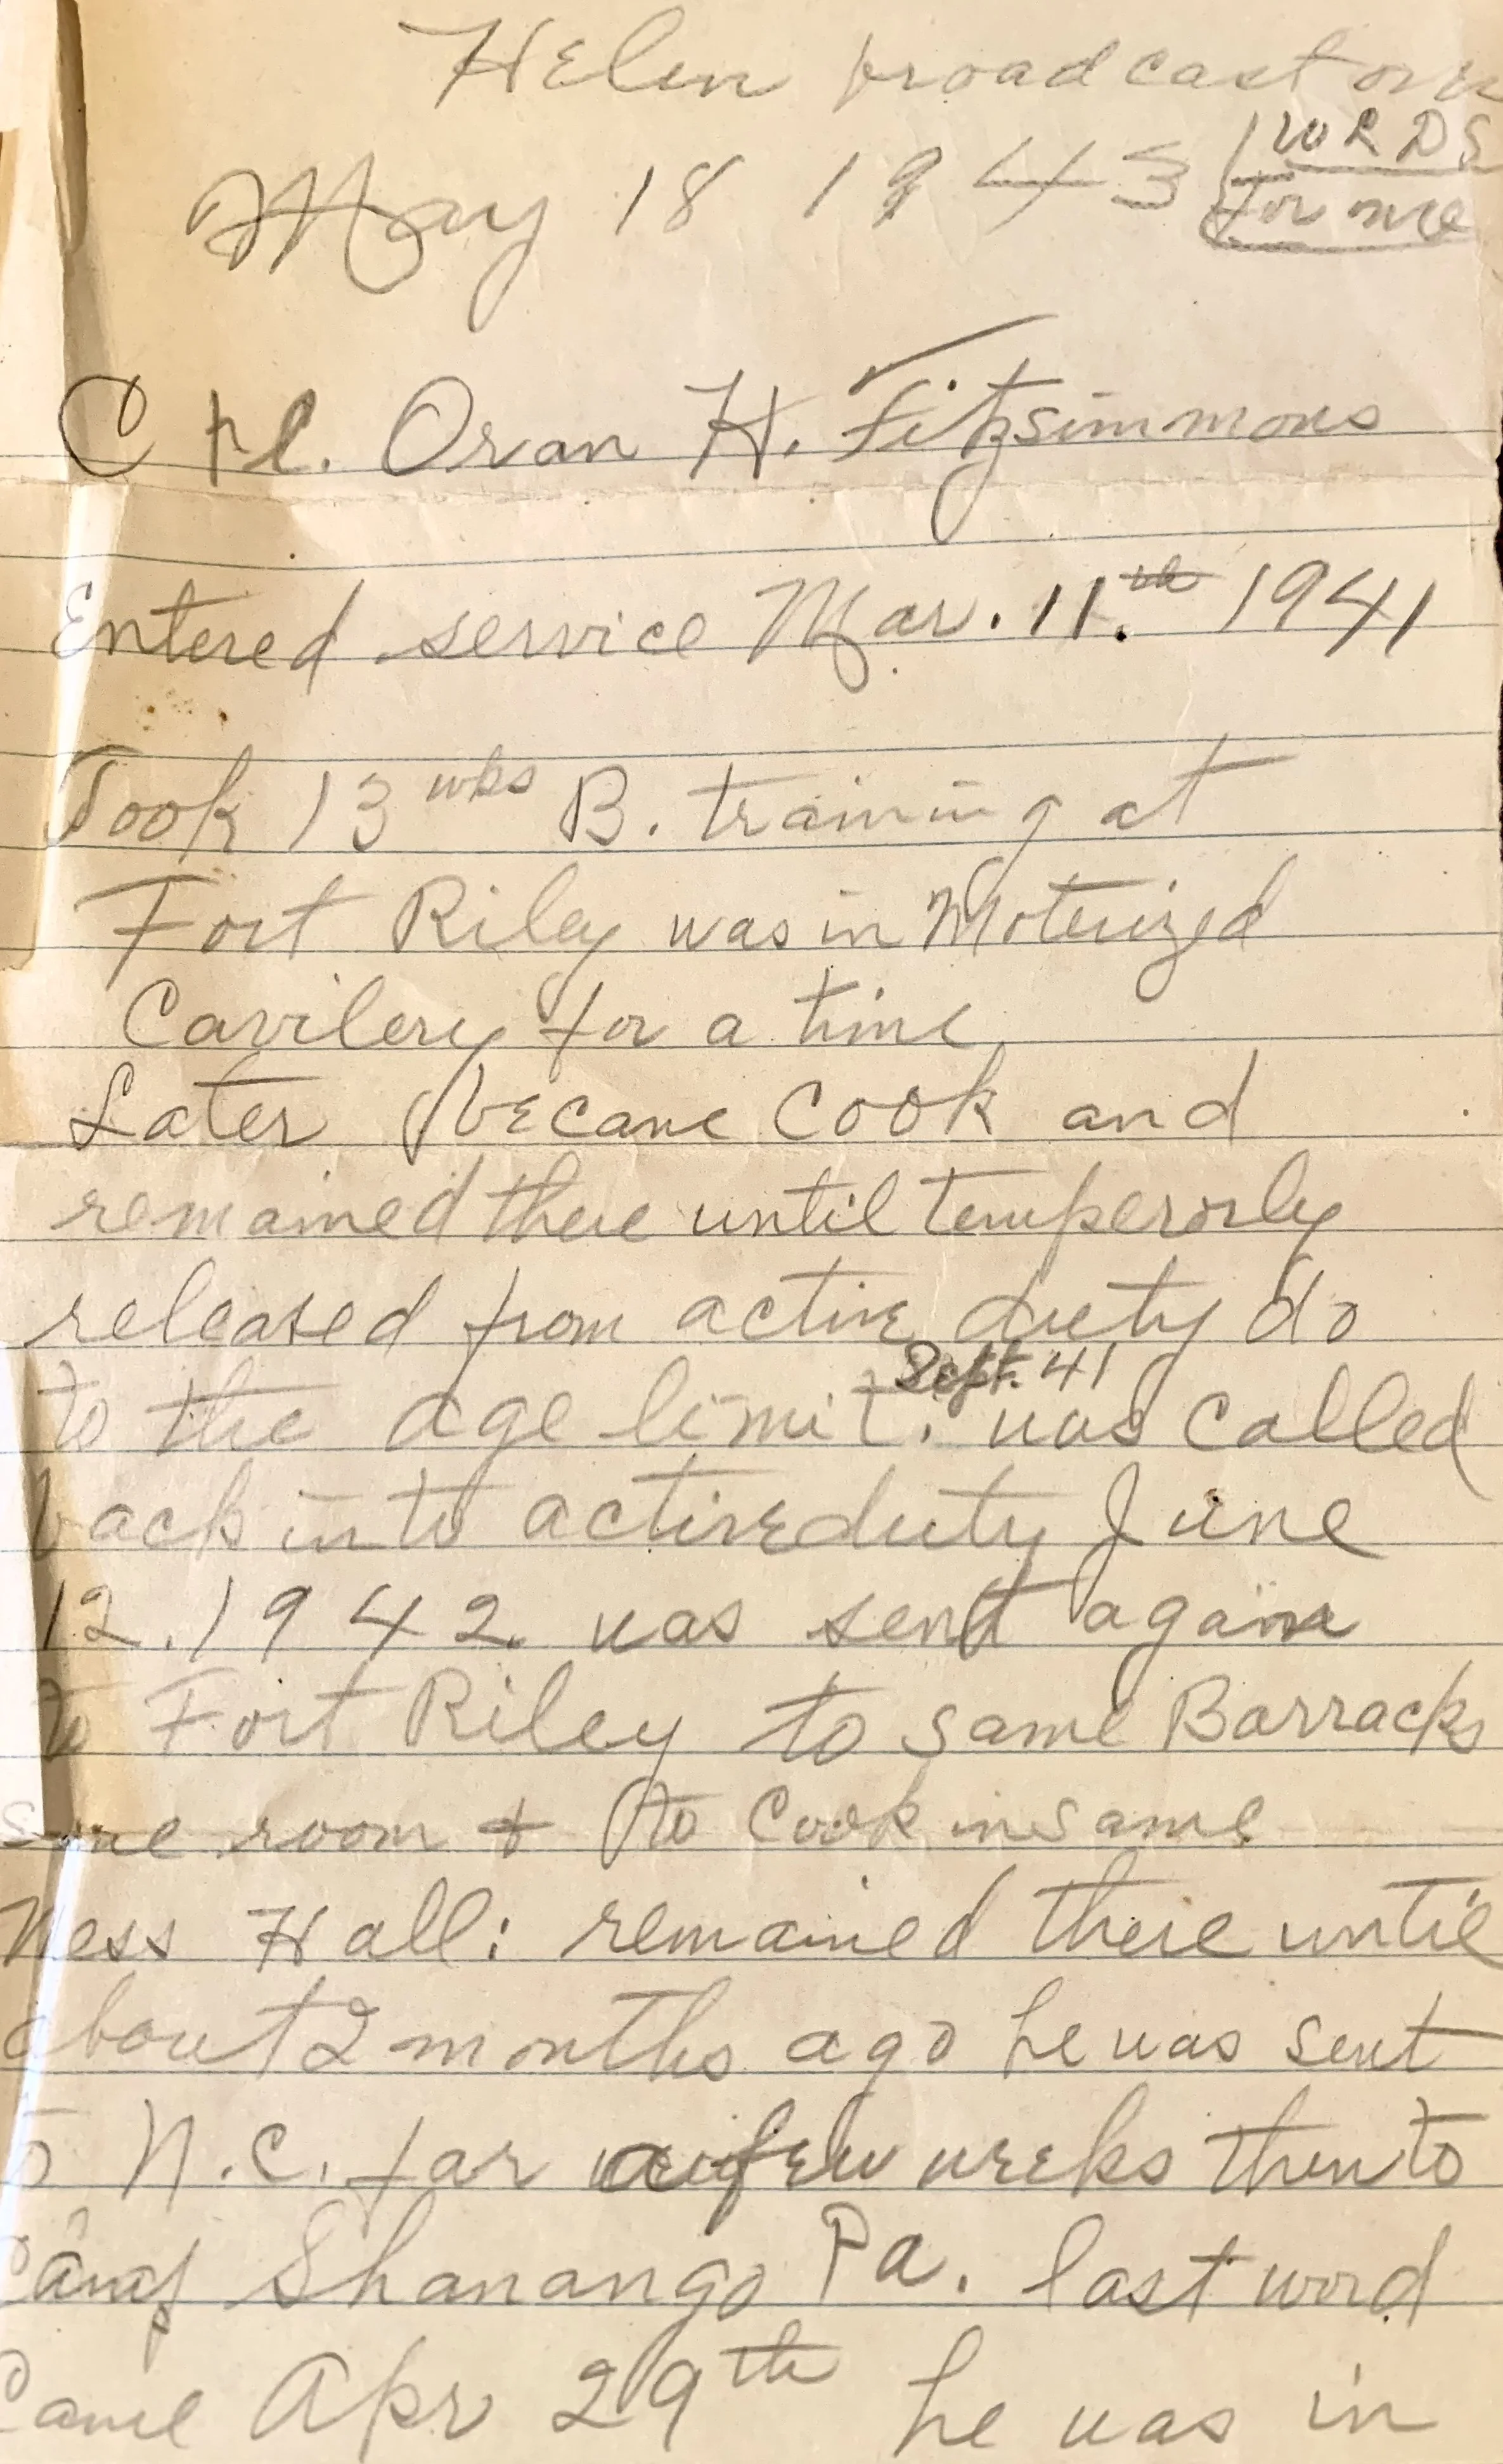 Helen broadcast over
WRDS
May 18 1943 for me
Cpl. Oran H. Fitzsimmons
Entered service Mar. 11.th 1941
Took 13 wks B. training at
Fort Riley was in Moterized
Cavilery for a time
Later became Cook and
remained there until temperorly
released from active duty do
Sept. 41
to the age limit. was called
back into active duty June
12. 1942 was sent again
to Fort Riley to same Barracks
same room & to Cook in same
Mess Hall: remained there until
about 2 months ago he was sent
to N.C. for a few weeks then to
Camp Shanango Pa. last word
Came Apr 29th he was in